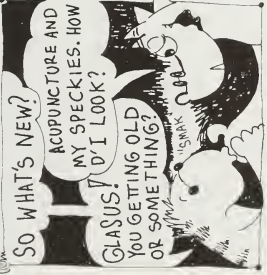 SO WHAT'S NEW?
ACUPUNCTURE AND
MY SPECKIES. HOW
D'I LOOK?
GLASUS!
YOU GETTING OLD
OR SOMETHING?
SMAK